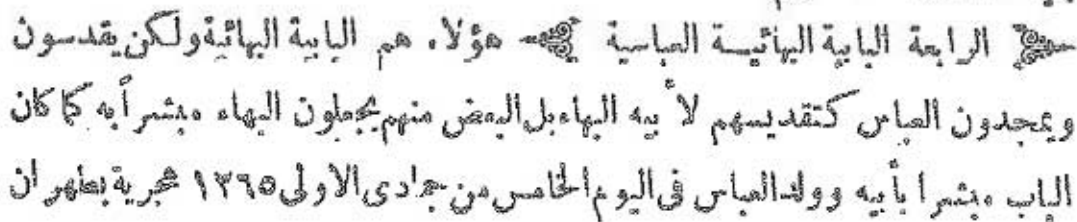 الرابعة البابية البهائية العباسية هؤلاء هم البابية البهائية ولكن يقدسون
ويمجدون العباس كتقديسهم لأبيه البهاء بل البعض منهم يجعلون البهاء مبشراً به كما كان
الباب مبشرا بأبيه وولد العباس فى اليوم الخامس من جمادى الاولى ١٢٦٥ هجرية بطهران